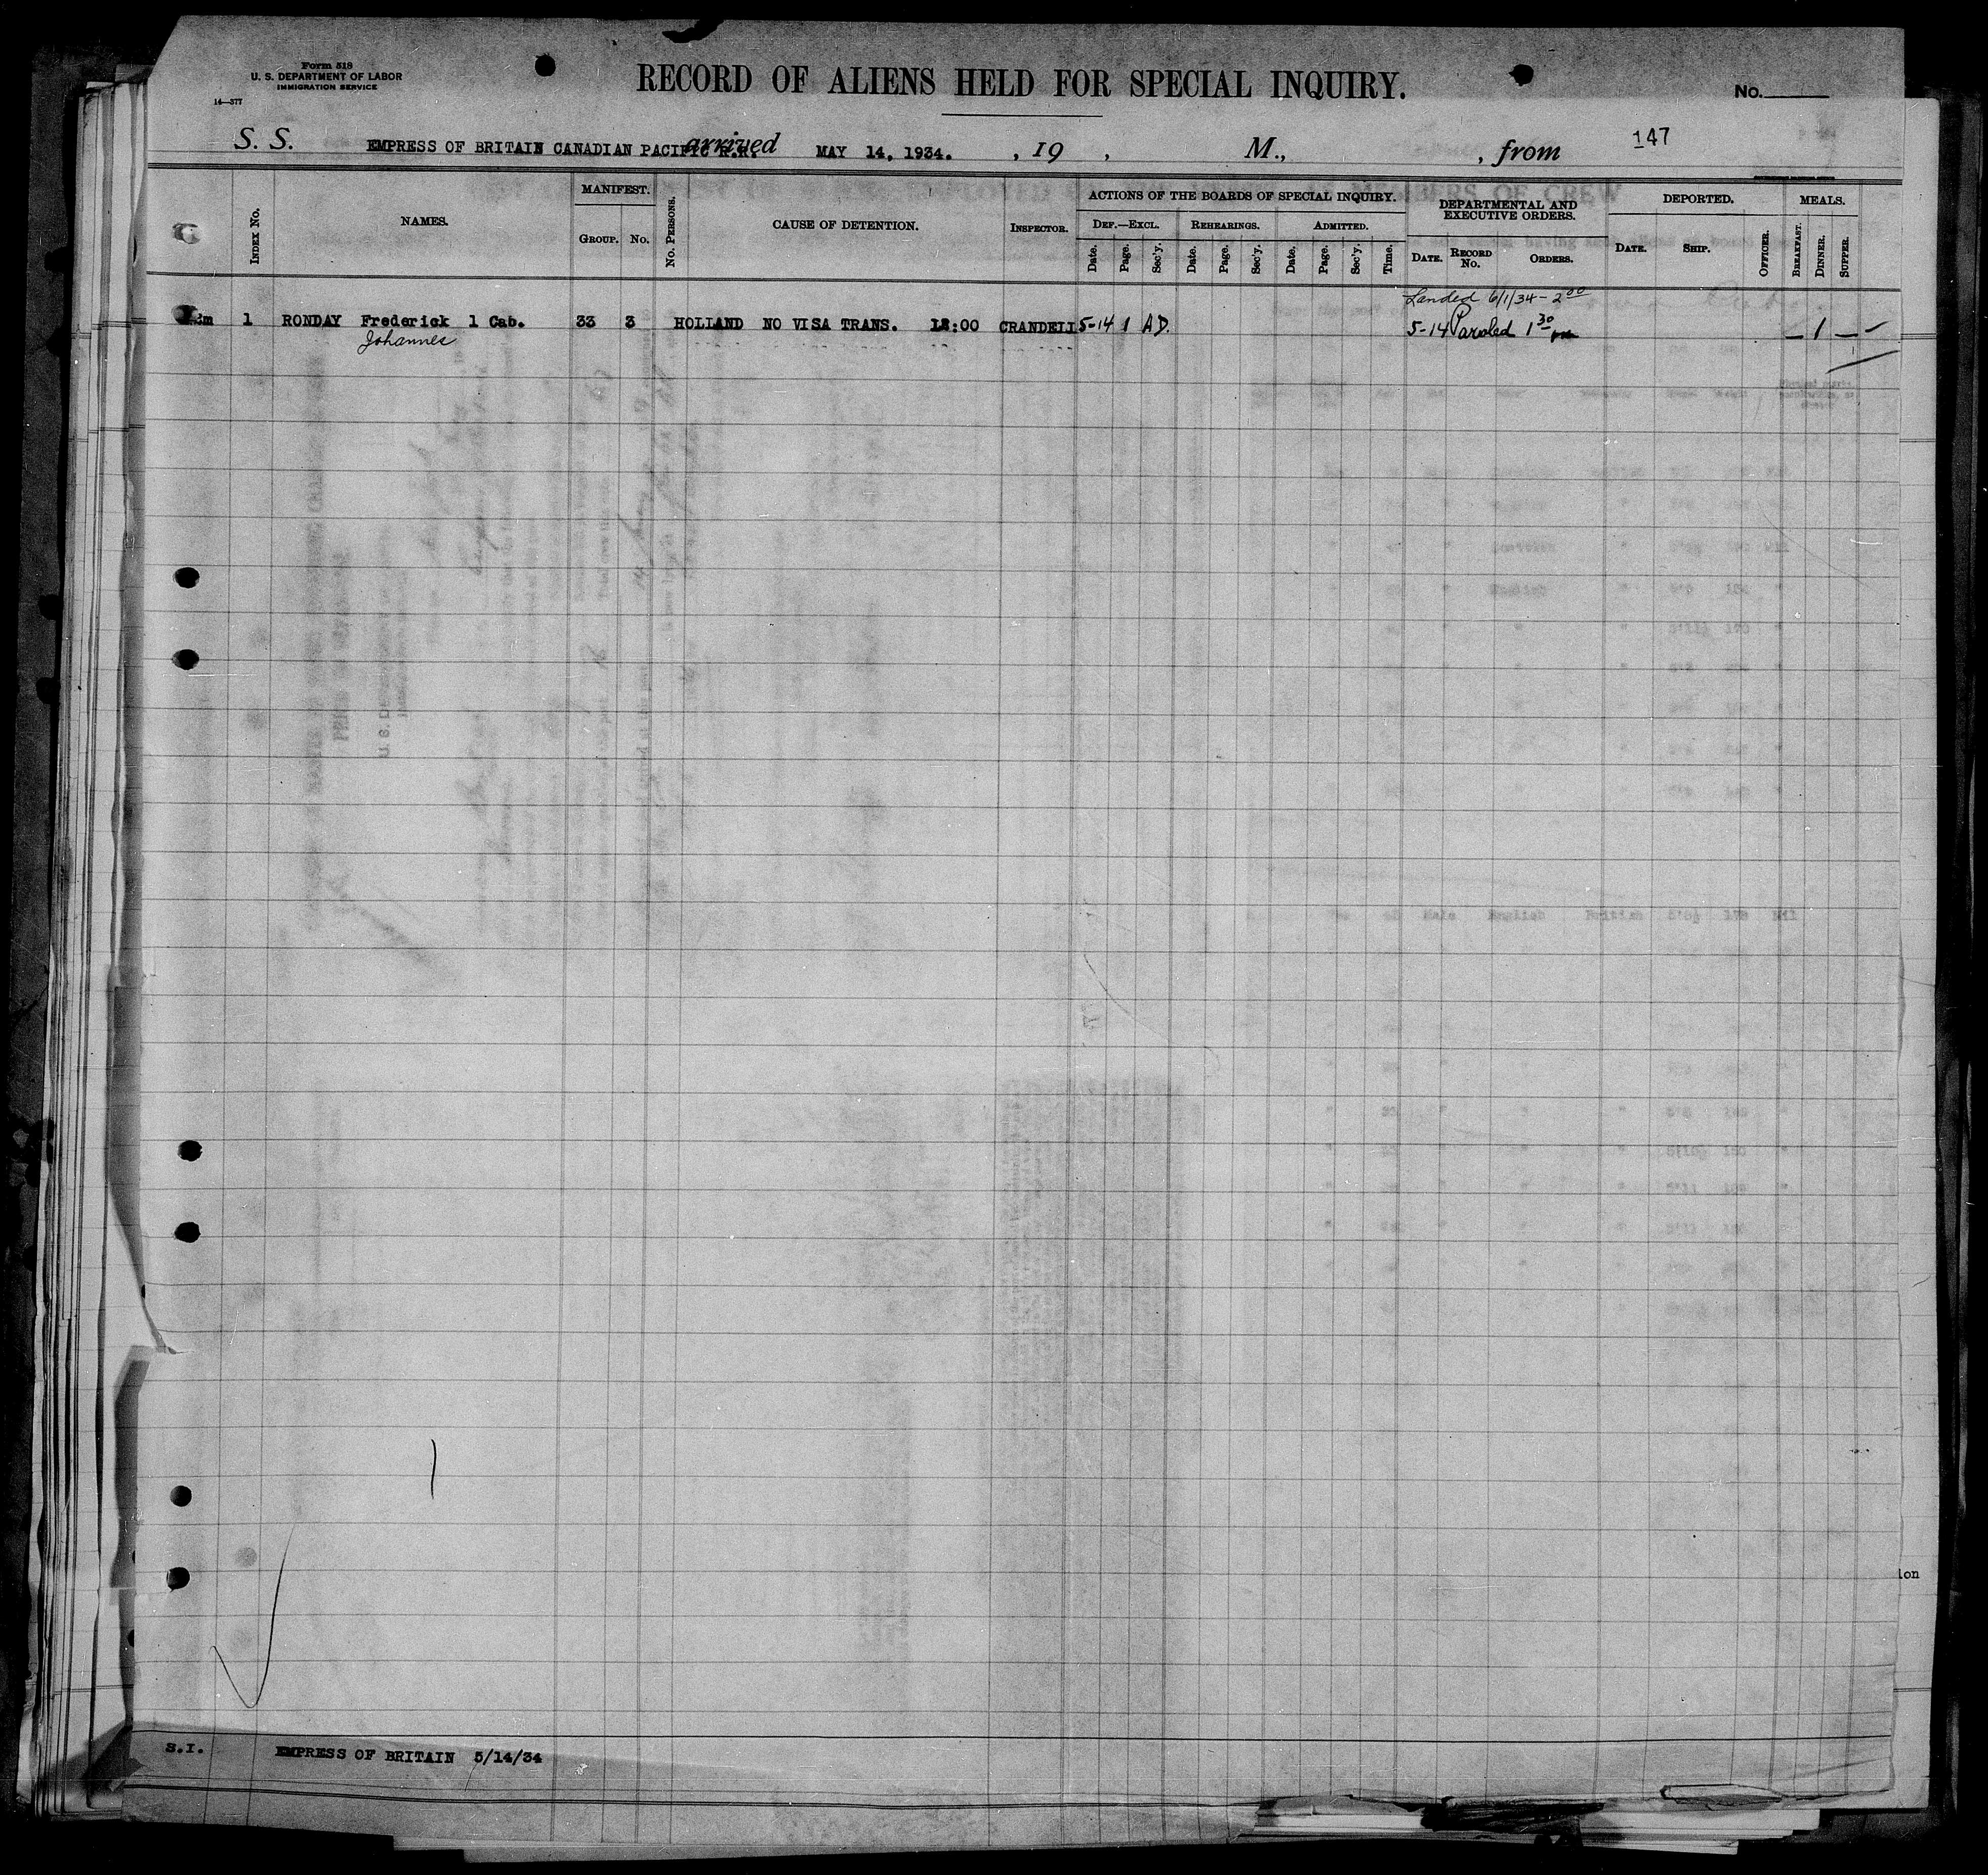 Form 518
U. S. DEPARTMENT OF LABOR
IMMIGRATION SERVICE
14—377
RECORD OF ALIENS HELD FOR SPECIAL INQUIRY.
No.
S. S. EMPRESS OF BRITAIN CANADIAN PACIFIC R.R. arrived MAY 14, 1934. , 19 , M., , from 147
INDEX No. NAMES. MANIFEST. GROUP. No. No. PERSONS. CAUSE OF DETENTION. INSPECTOR.
ACTIONS OF THE BOARDS OF SPECIAL INQUIRY.
DEF.—EXCL. REHEARINGS. ADMITTED.
Date. Page. Sec'y. Date. Page. Sec'y. Date. Page. Sec'y. Time.
DEPARTMENTAL AND
EXECUTIVE ORDERS.
DATE. RECORD No. ORDERS.
DEPORTED.
DATE. SHIP. OFFICER.
MEALS.
BREAKFAST. DINNER. SUPPER.
Landed 6/1/34 - 2 00
1 RONDAY Frederick 1 Cab. 33 3 HOLLAND NO VISA TRANS. 12:00 CRANDELL 5-14 1 AD. 5-14 Paroled 1 30 pm — 1 —
Johannes
ion
S.I. EMPRESS OF BRITAIN 5/14/34